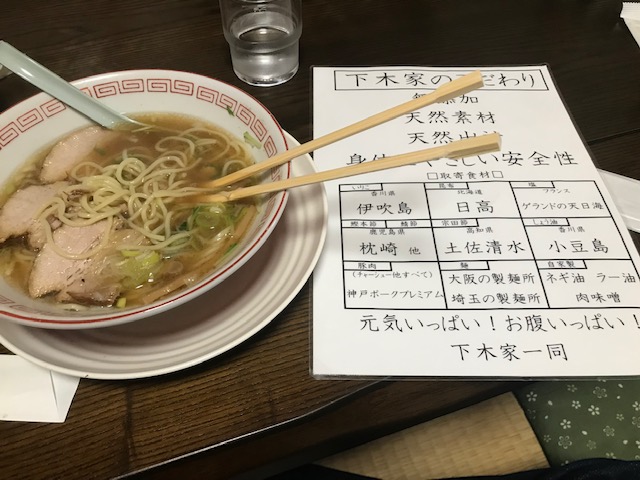 下木家のこだわり
無添加
天然素材
天然出汁
身体にやさしい安全性
□取寄食材□
いりこ
香川県
伊吹島
昆布
北海道
日高
塩
フランス
ゲランドの天日海
鰹本節 鯖節
鹿児島県
枕崎 他
宗田節
高知県
土佐清水
しょう油
香川県
小豆島
豚肉
(チャーシュー他すべて)
神戸ポークプレミアム
麺
大阪の製麺所
埼玉の製麺所
自家製
ネギ油 ラー油
肉味噌
元気いっぱい!お腹いっぱい!
下木家一同